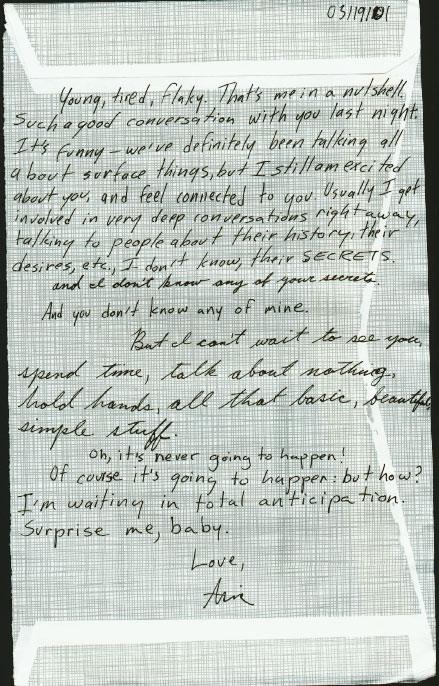 03/19/01
Young, tired, flaky. That's me in a nutshell.
Such a good conversation with you last night.
It's funny – we've definitely been talking all
about surface things, but I still am excited
about you, and feel connected to you. Usually I get
involved in very deep conversations right away,
talking to people about their history, their
desires, etc., I don't know, their SECRETS.
and I don't know any of your secrets.
And you don't know any of mine.
But I can't wait to see you,
spend time, talk about nothing,
hold hands, all that basic, beautiful,
simple stuff.
Oh, it's never going to happen!
Of course it's going to happen: but how?
I'm waiting in total anticipation.
Surprise me, baby.
Love,